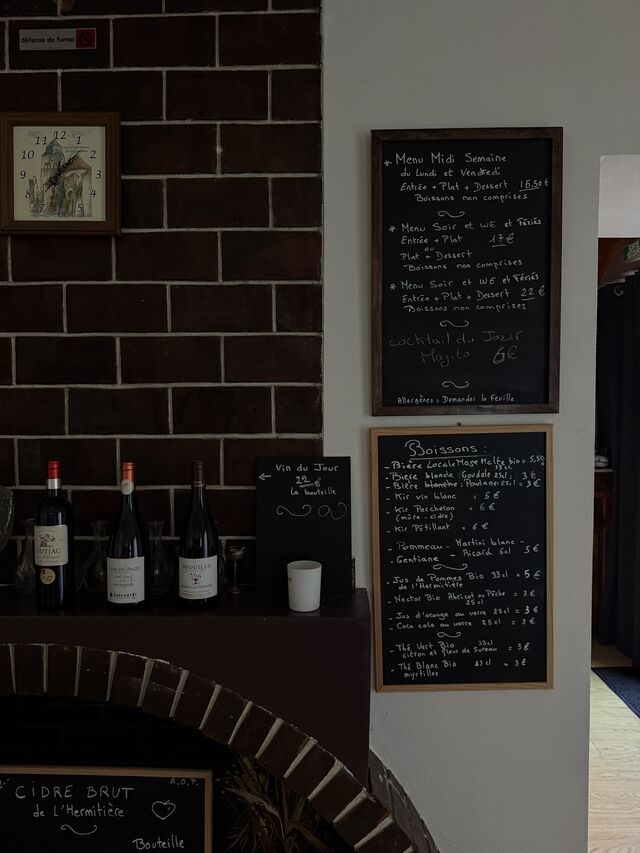 défense de fumer
12
11 1
10 2
9 3
8 4
7 6 5
* Menu Midi Semaine
du Lundi et Vendredi
Entrée + Plat + Dessert 16,50€
Boissons non comprises
* Menu Soir et WE et Fériés
Entrée + Plat 17€
ou
Plat + Dessert
Boissons non comprises
* Menu Soir et WE et Fériés
Entrée + Plat + Dessert 22€
Boissons non comprises
Cocktail du Jour
Mojito 6€
Allergènes : Demander la Feuille
Boissons :
- Bière Locale Mage Malte bio = 5,50
33cl
- Bière blonde : Goudale 25cl : 3€
- Bière blanche : Paulaner 25cl = 3€
- Kir vin blanc = 5€
- Kir Percheron = 6€
(mûre - cidre)
- Kir Pétillant = 6€
- Pommeau - Martini blanc -
- Gentiane - Ricard 6cl 5€
- Jus de Pommes Bio 33cl = 5€
de l'Hermitière
- Nectar Bio Abricot ou Pêche = 3€
25cl
- Jus d'orange au verre 25cl = 3€
- Coca cola au verre 25cl = 3€
- Thé Vert Bio 33cl = 3€
citron et fleur de Sureau
- Thé Blanc Bio 33cl = 3€
myrtilles
Vin du Jour
22€
la bouteille
TUTIAC
BROUILLY
CIDRE BRUT
A.O.P.
de L'Hermitière
Bouteille